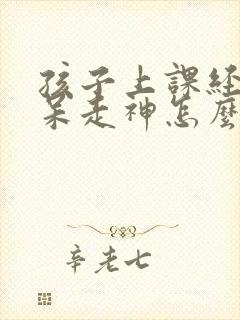 孩子上課經
呆走神怎麼
辛老七